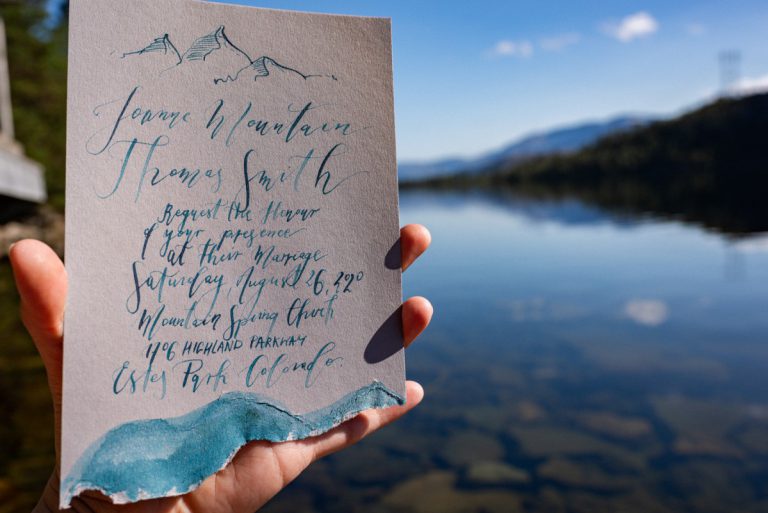 Joanne Mountain
Thomas Smith
Request the Honour
of your presence
at their Marriage
Saturday, August 26,
Mountain Spring Church
1706 HIGHLAND PARKWAY
Estes Park Colorado.